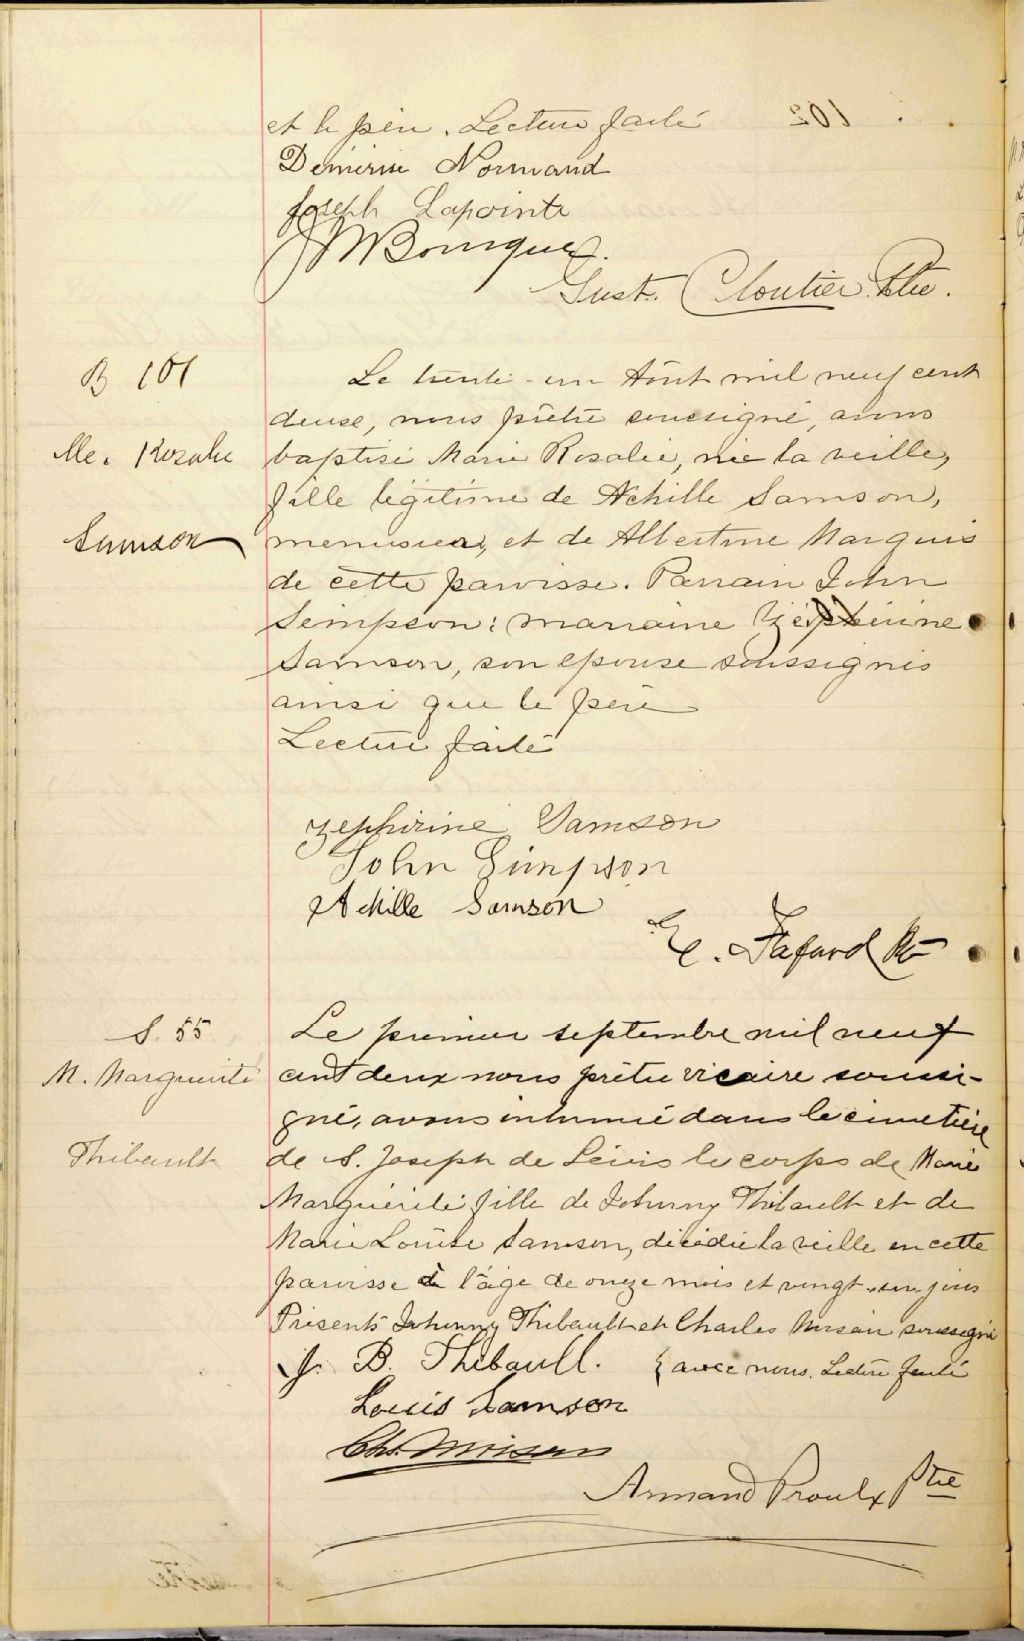 et le père. Lecture faite
Demerise Normand
Joseph Lapointe
JM Bourque
Gust. Cloutier Ptre.
B 101
Le trente-un Août mil neuf cent
deuse, nous prêtre soussigné, avons
Me. Rosalie
baptisé Marie Rosalie, née la veille,
fille légitime de Achille Samson,
Samson
menusier, et de Albertine Marquis
de cette paroisse. Parrain John
Simpson; marraine Zéphirine
Samson, son épouse soussignés
ainsi que le père
Lecture faite
Zephirine Samson
John Simpson
Achille Samson
E. Fafard Ptr
S. 55
Le premier septembre mil neuf
M. Marguerite
cent deux nous prêtre vicaire soussi-
gné, avons inhumé dans le cimetière
Thibault
de S. Joseph de Lévis le corps de Marie
Marguerite fille de Johnny Thibault et de
Marie Louise Samson, décédée la veille en cette
paroisse à l'âge de onze mois et vingt-un jours
Présents Johnny Thibault et Charles soussignés
J. B. Thibault. avec nous. Lecture faite
Louis Samson
Chs.
Armand Proulx Ptre